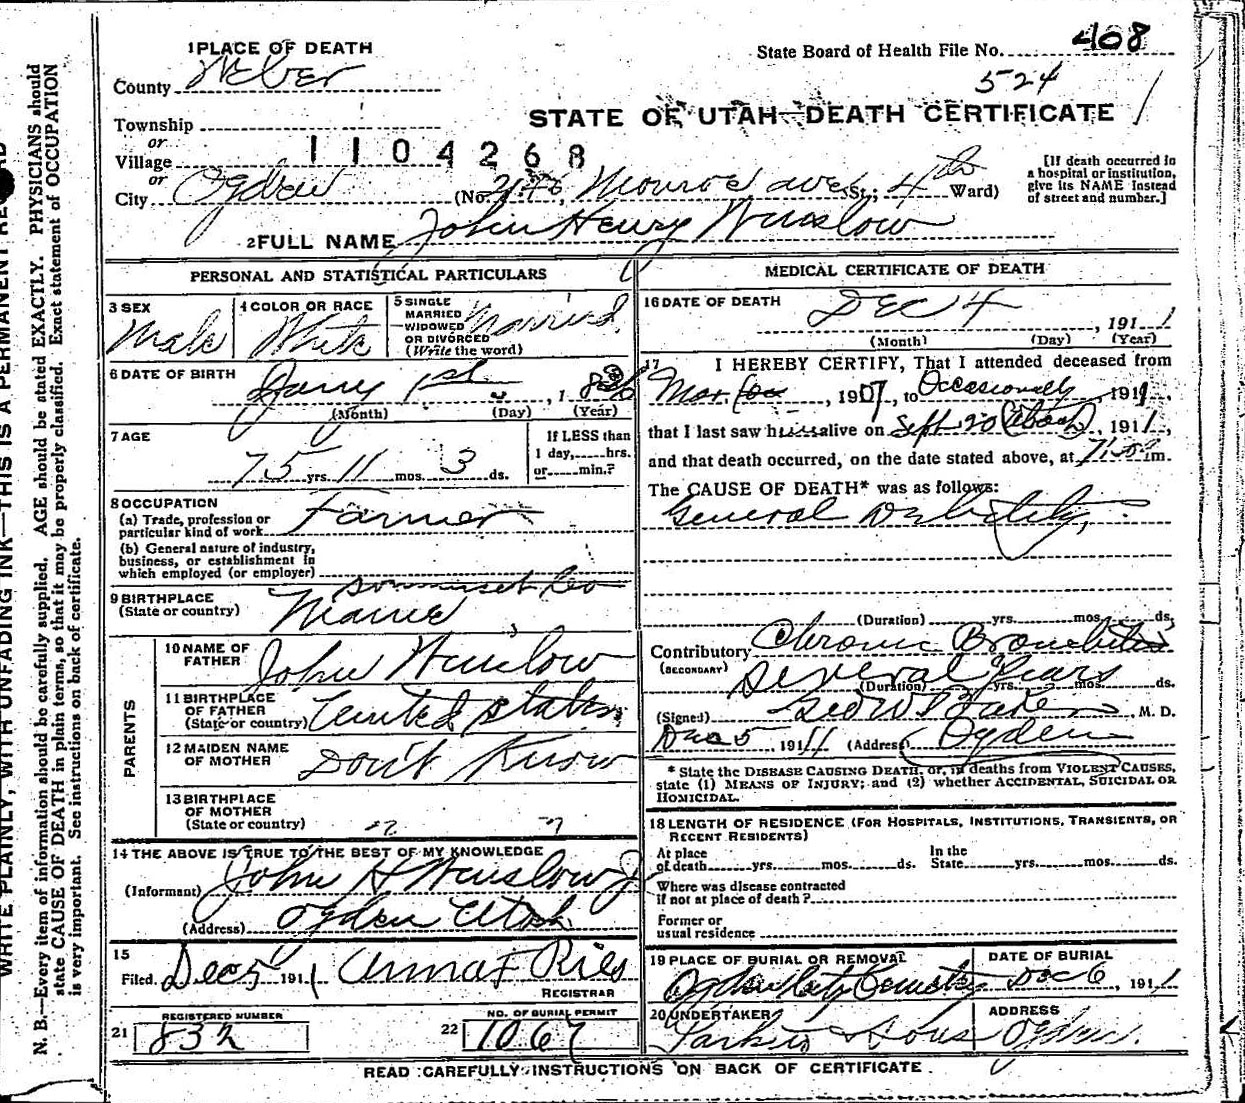 WRITE PLAINLY, WITH UNFADING INK—THIS IS A PERMANENT RECORD
N. B.—Every item of information should be carefully supplied. AGE should be stated EXACTLY. PHYSICIANS should
state CAUSE OF DEATH in plain terms, so that it may be properly classified. Exact statement of OCCUPATION
is very important. See instructions on back of certificate.
1 PLACE OF DEATH
County Weber
Township
or
Village
1104268
or
City Ogden
State Board of Health File No. 408
524
STATE OF UTAH—DEATH CERTIFICATE
(No. Monroe ave St.; 4th Ward)
[If death occurred in
a hospital or institution,
give its NAME instead
of street and number.]
2 FULL NAME John Henry Winslow
PERSONAL AND STATISTICAL PARTICULARS
3 SEX
Male
4 COLOR OR RACE
White
5 SINGLE
MARRIED
WIDOWED
OR DIVORCED
(Write the word)
Married
6 DATE OF BIRTH
Jany 1st, 18
(Month) (Day) (Year)
7 AGE
75 yrs. 11 mos. 3 ds.
If LESS than
1 day, hrs.
or min.?
8 OCCUPATION
(a) Trade, profession or
particular kind of work Farmer
(b) General nature of industry,
business, or establishment in
which employed (or employer)
9 BIRTHPLACE
(State or country)
Sommerset Co
Maine
PARENTS
10 NAME OF
FATHER John Winslow
11 BIRTHPLACE
OF FATHER
(State or country) United States
12 MAIDEN NAME
OF MOTHER Don't Know
13 BIRTHPLACE
OF MOTHER
(State or country) " "
14 THE ABOVE IS TRUE TO THE BEST OF MY KNOWLEDGE
(Informant) John H Winslow Jr
(Address) Ogden Utah
15
Filed Dec 5 1911 Anna F Ries
REGISTRAR
REGISTERED NUMBER
21 832
NO. OF BURIAL PERMIT
22 1067
MEDICAL CERTIFICATE OF DEATH
16 DATE OF DEATH
Dec 4, 1911
(Month) (Day) (Year)
17 I HEREBY CERTIFY, That I attended deceased from
Mar. , 1907, to Occasionally 1911,
that I last saw him alive on Sept 20 (about), 1911,
and that death occurred, on the date stated above, at m.
The CAUSE OF DEATH* was as follows:
General Debility,
(Duration) yrs. mos. ds.
Contributory Chronic Bronchitis
(SECONDARY)
Several years
(Duration) yrs. mos. ds.
(Signed) Geo W Baker M. D.
Dec 5, 1911 (Address) Ogden
* State the DISEASE CAUSING DEATH, or, in deaths from VIOLENT CAUSES,
state (1) MEANS OF INJURY; and (2) whether ACCIDENTAL, SUICIDAL OR
HOMICIDAL.
18 LENGTH OF RESIDENCE (FOR HOSPITALS, INSTITUTIONS, TRANSIENTS, OR
RECENT RESIDENTS)
At place
of death yrs. mos. ds.
In the
State yrs. mos. ds.
Where was disease contracted
if not at place of death?
Former or
usual residence
19 PLACE OF BURIAL OR REMOVAL
Ogden City Cemetery
DATE OF BURIAL
Dec 6, 1911
20 UNDERTAKER
Larkin & Sons
ADDRESS
Ogden.
READ CAREFULLY INSTRUCTIONS ON BACK OF CERTIFICATE.